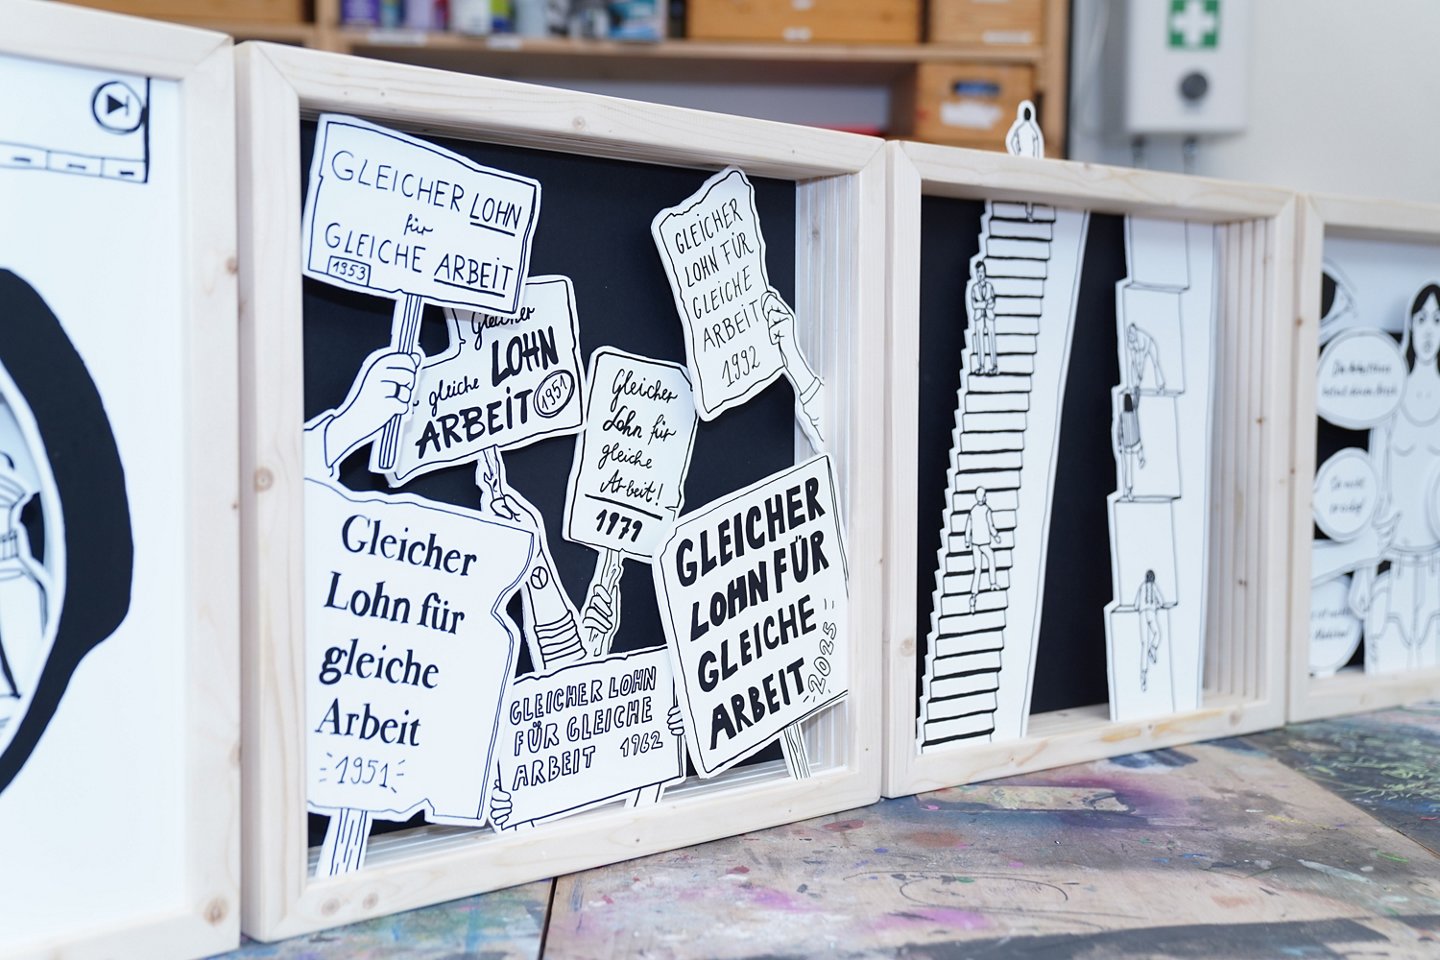 GLEICHER LOHN
für
GLEICHE ARBEIT
1953
Gleicher
LOHN
gleiche
ARBEIT
1951
GLEICHER
LOHN FÜR
GLEICHE
ARBEIT
1992
Gleicher
Lohn für
gleiche
Arbeit!
1979
Gleicher
Lohn für
gleiche
Arbeit
1951
GLEICHER LOHN
FÜR GLEICHE
ARBEIT 1962
GLEICHER
LOHN FÜR
GLEICHE
ARBEIT
2025